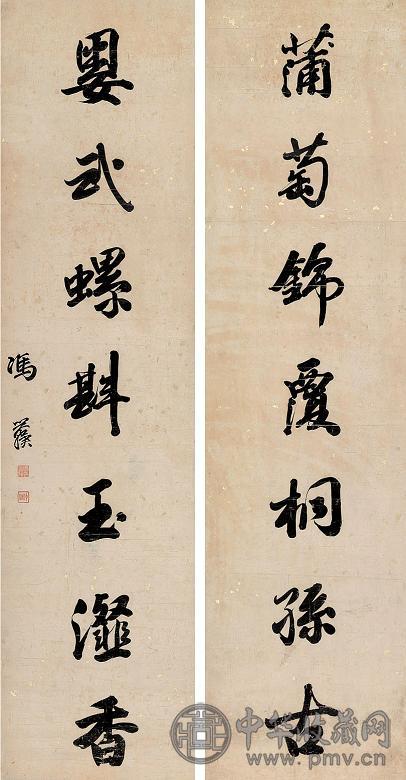 蒲萄錦覆桐孫古
嬰武螺斟玉瀣香
馮
中华收藏网
www.pmv.cn